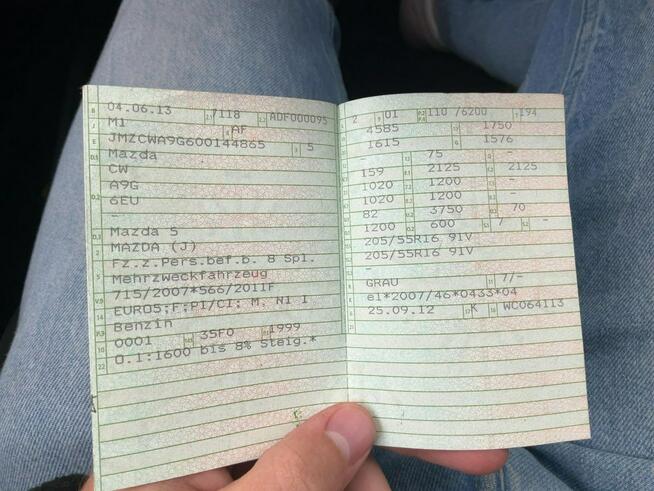 04.06.13 7118 ADF000095
M1 AF
JMZCWA9G600144865 5
Mazda
CW
A9G
6EU
-
Mazda 5
MAZDA (J)
Fz.z.Pers.bef.b. 8 Spl.
Mehrzweckfahrzeug
715/2007*566/2011F
EURO5;F;PI/CI; M, N1 I
Benzin
0001 35F0 1999
O.1:1600 bis 8% Steig.*
2 01 110 /6200 194
4585 1750
1615 1576
- 75
159 2125 2125
1020 1200 -
1020 1200 -
82 3750 70
1200 600 7 -
205/55R16 91V
205/55R16 91V
-
GRAU 7/-
e1*2007/46*0433*04
25.09.12 K WC064113